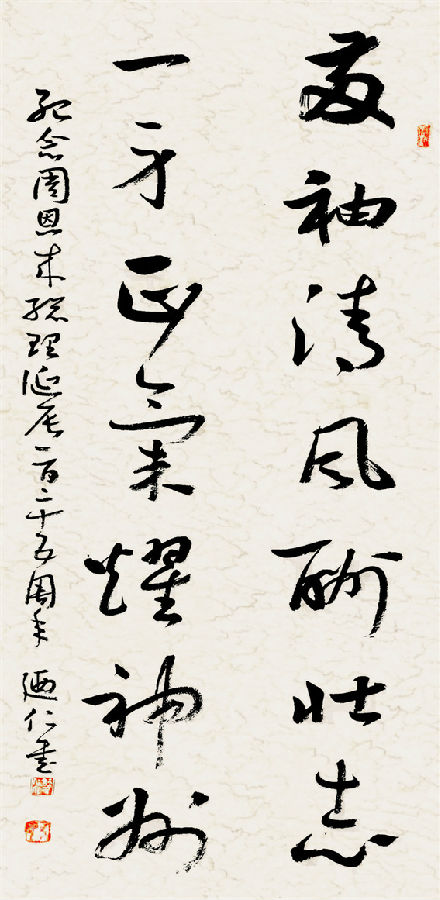 兩袖清风酬壮志
一身正氣耀神州
纪念周恩来總理诞辰一百二十五周年 廼仁書